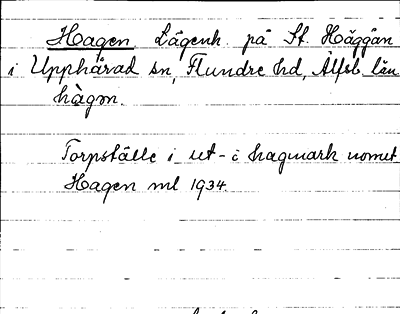 Hagen Lägenh. på St. Häggån
i Upphärad sn, Flundre hd, Älfsb. län
hàgɷn.
Torpställe i ut- i hagmark
Hagen ml 1934.